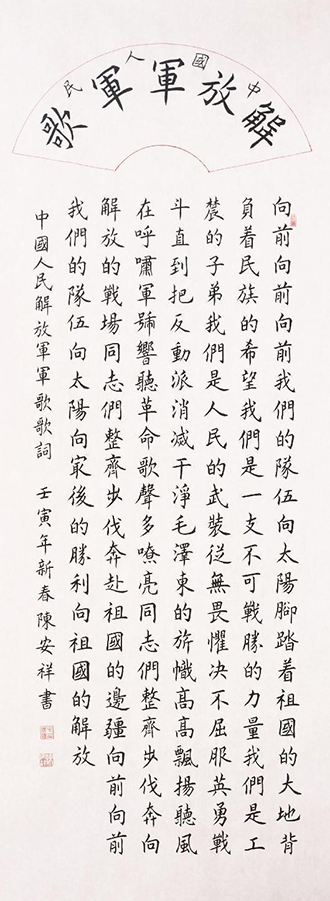 中國人民
解放軍軍歌
向前向前向前我們的隊伍向太陽腳踏着祖國的大地背
負着民族的希望我們是一支不可戰勝的力量我們是工
農的子弟我們是人民的武裝從無畏懼決不屈服英勇戰
斗直到把反動派消滅干淨毛澤東的旂幟高高飄揚聽風
在呼嘯軍號響聽革命歌聲多嘹亮同志們整齊步伐奔向
解放的戰場同志們整齊步伐奔赴祖國的邊疆向前向前
我們的隊伍向太陽向冣後的勝利向祖國的解放
中國人民解放軍軍歌歌詞 壬寅年新春陳安祥書